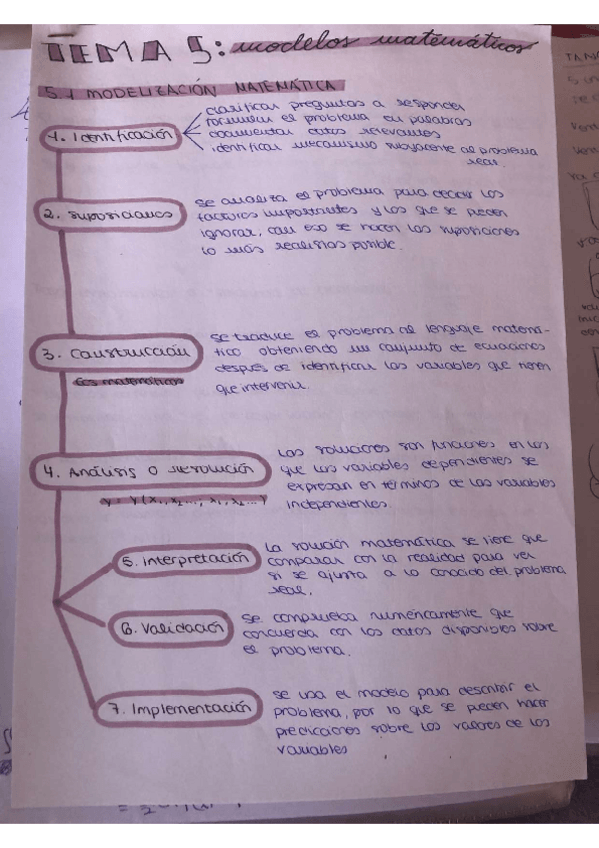 TEMA 5: modelos matemáticos
5.1 MODELIZACIÓN MATEMÁTICA
1. Identificación
clarificar preguntas a responder
formular el problema en palabras
documentar datos relevantes
identificar mecanismo subyacente al problema
real.
2. suposiciones
se analiza el problema para decidir los
factores importantes y los que se pueden
ignorar, con eso se hacen las suposiciones
lo más realistas posible.
3. Construcción
se traduce el problema al lenguaje matemá-
tico obteniendo un conjunto de ecuaciones
después de identificar las variables que tienen
que intervenir.
4. Análisis o resolución
Las soluciones son funciones en las
que las variables dependientes se
expresan en términos de las variables
independientes.
5. interpretación
La solución matemática se tiene que
comparar con la realidad para ver
si se ajusta a lo conocido del problema
real.
6. Validación
se comprueba numéricamente que
concuerda con los datos disponibles sobre
el problema.
7. Implementación
se usa el modelo para describir el
problema, por lo que se pueden hacer
predicciones sobre los valores de las
variables